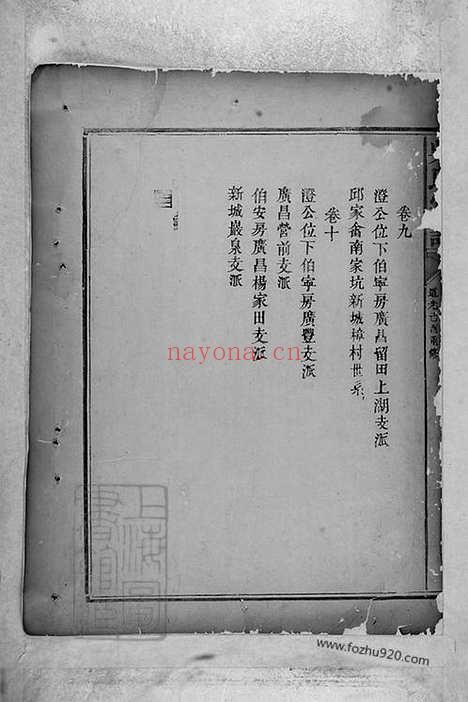 卷九
澄公位下伯寧房廣昌留田上湖支派
邱家畬南家坑新城樟村世系
卷十
澄公位下伯寧房廣豐支派
廣昌營前支派
伯安房廣昌楊家田支派
新城巖泉支派
nayona.cn
www.fozhu920.com